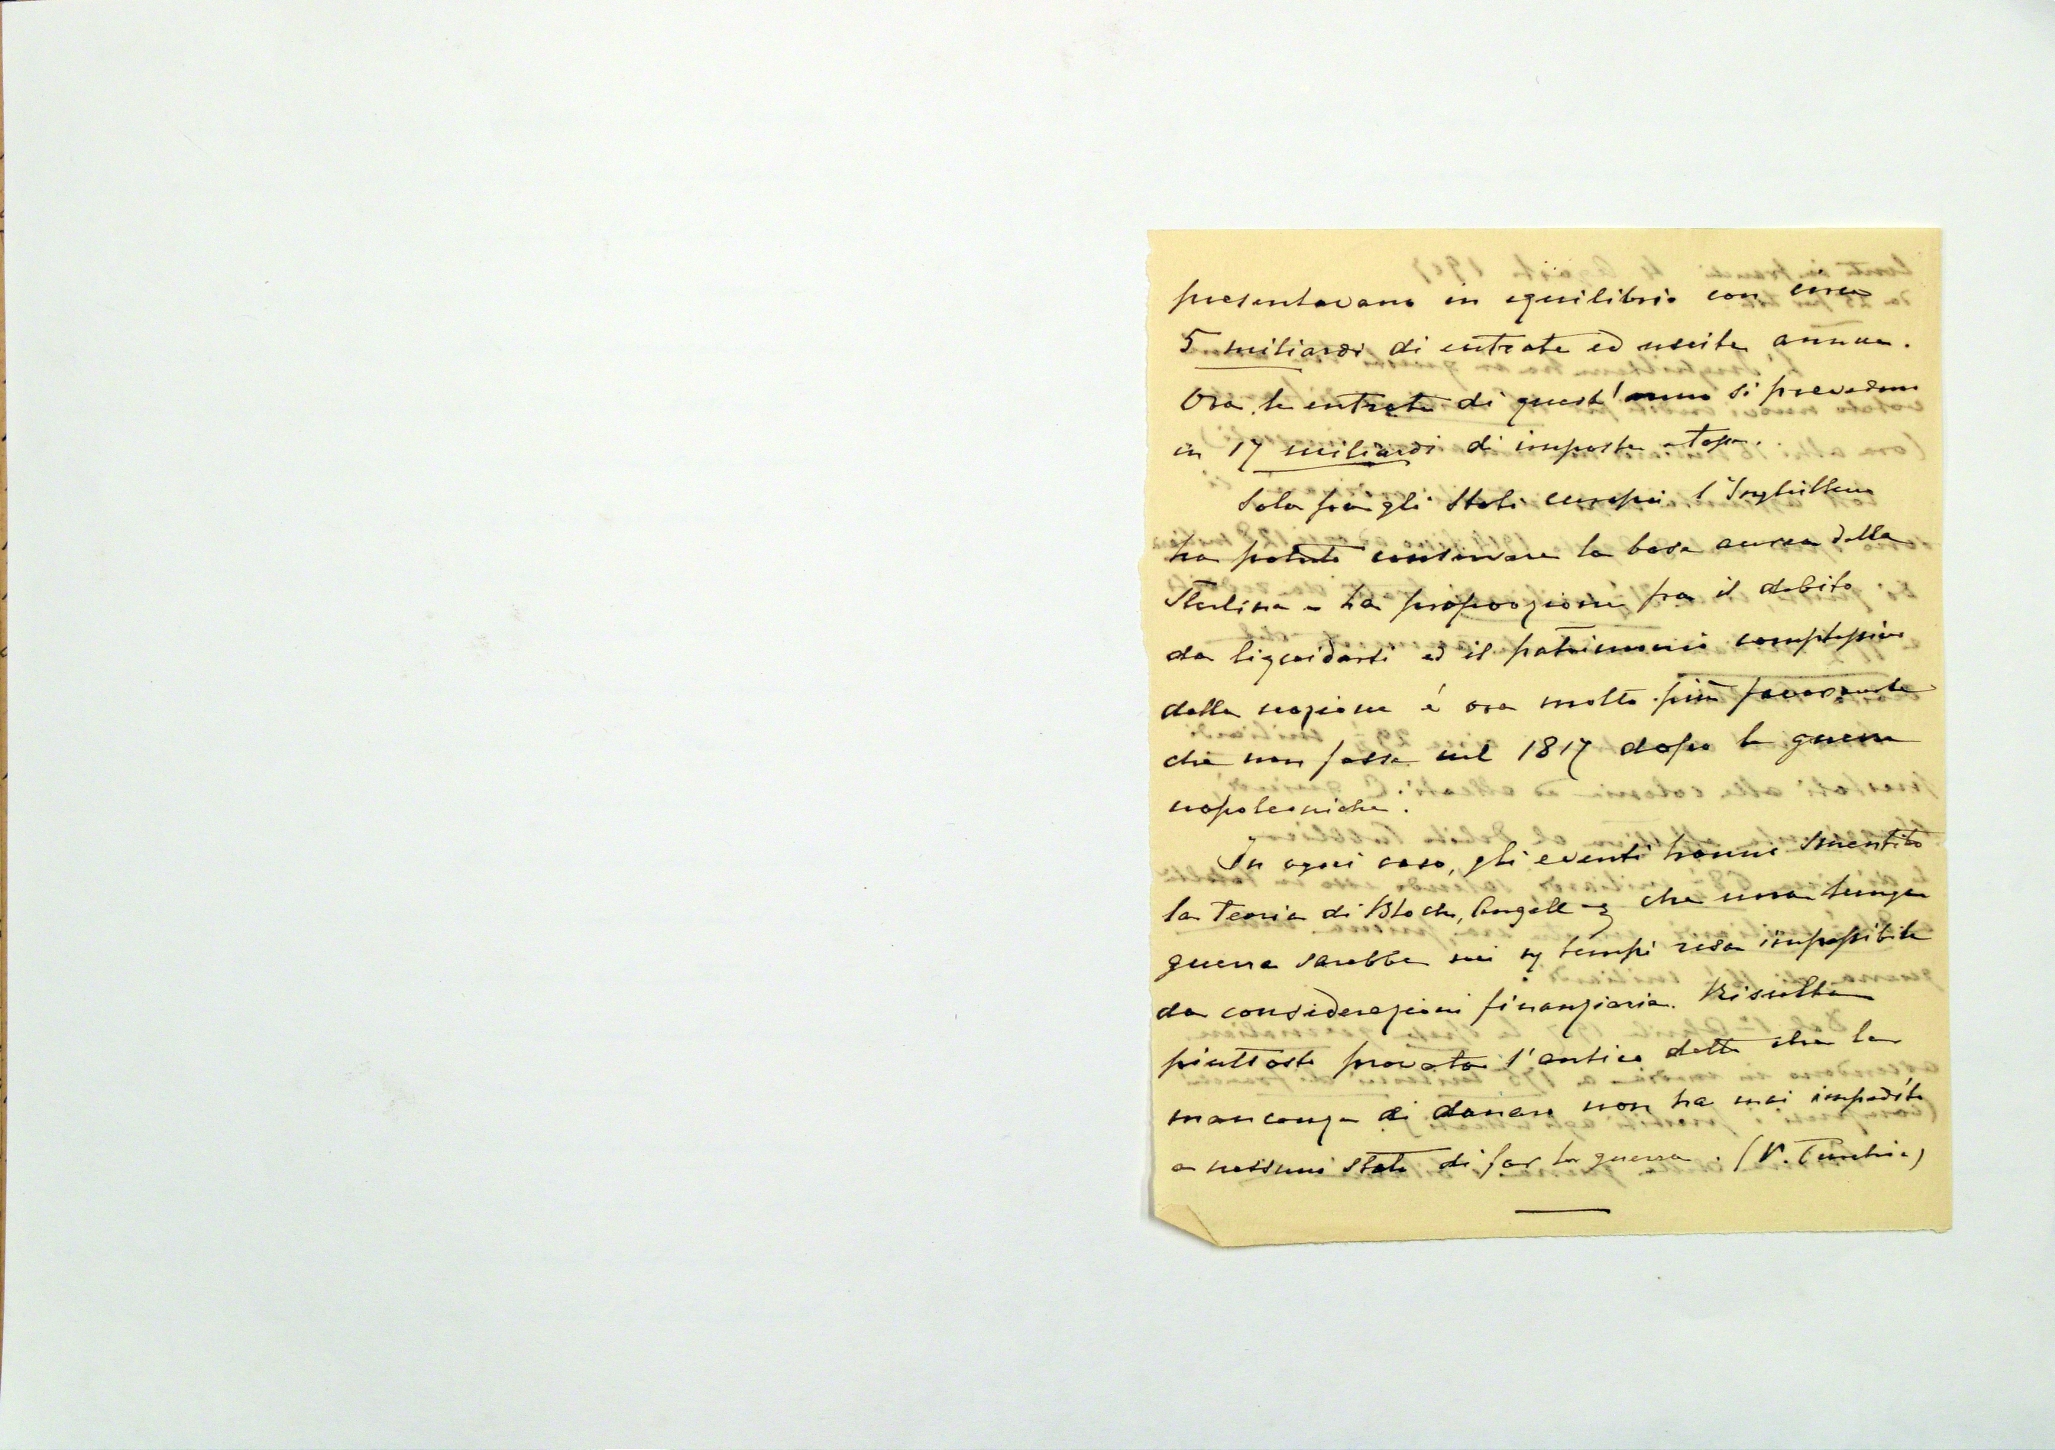 presentavano in equilibrio con circa
5 miliardi di entrate ed uscite annue.
Ora le entrate di quest'anno si prevedono
in 17 miliardi di imposte e tasse.
Sola fra gli Stati europei l'Inghilterra
ha potuto conservare la base aurea della
Sterlina e la proporzione fra il debito
da liquidarsi ed il patrimonio complessivo
della nazione é ora molto più favorevole
che non fosse nel 1817 dopo le guerre
napoleoniche.
In ogni caso, gli eventi hanno smentito
la Teoria di Bloch, Angell che una lunga
guerra sarebbe nei tempi resa impossibile
da considerazioni finanziarie. Risulta
piuttosto provato l'antico detto che la
mancanza di danaro non ha mai impedito
a nessuno stato di far la guerra. (V. Turchia)